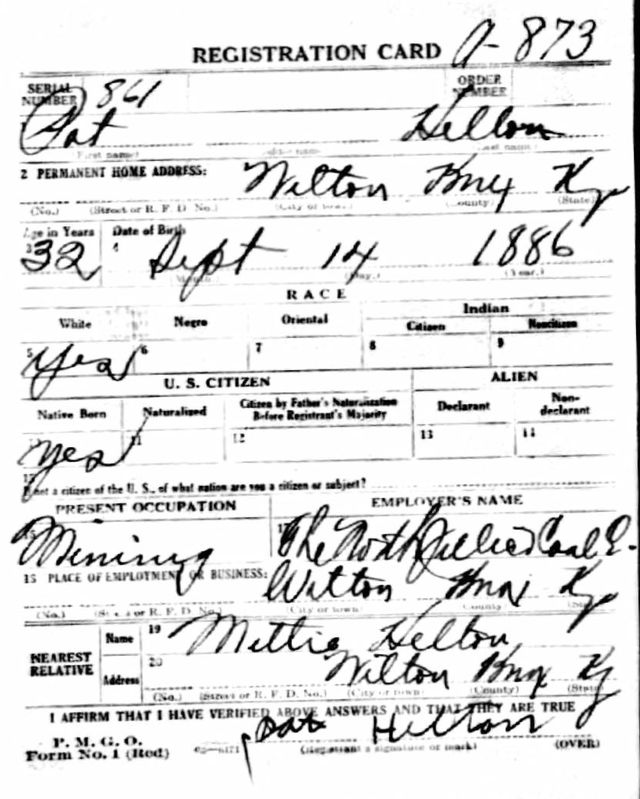 REGISTRATION CARD A-873
SERIAL NUMBER 861 ORDER NUMBER
Pat Helton
(First name) (Middle name) (Last name)
2 PERMANENT HOME ADDRESS: Wilton Knox Ky
(No.) (Street or R. F. D. No.) (City or town) (County) (State)
Age in Years Date of Birth
3 32 4 Sept 14 1886
(Month) (Day.) (Year.)
RACE
White Negro Oriental Indian
Citizen Noncitizen
5 Yes 6 7 8 9
U. S. CITIZEN ALIEN
Native Born Naturalized Citizen by Father's Naturalization Before Registrant's Majority Declarant Non-declarant
Yes 11 12 13 14
15
If not a citizen of the U. S., of what nation are you a citizen or subject?
PRESENT OCCUPATION EMPLOYER'S NAME
Mining 17 The North Jellico Coal
18 PLACE OF EMPLOYMENT OR BUSINESS: Wilton Knox Ky
(No.) (Street or R. F. D. No.) (City or town) (County) (State)
NEAREST RELATIVE Name 19 Mettie Helton
Address 20 Wilton Knox Ky
(No.) (Street or R. F. D. No.) (City or town) (County) (State)
I AFFIRM THAT I HAVE VERIFIED ABOVE ANSWERS AND THAT THEY ARE TRUE
P. M. G. O. Pat Helton
Form No. 1 (Red) (Registrant's signature or mark) (OVER)